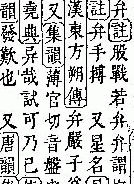 弁註股戰若弁弁謂
註弁手搏又星名
漢東方朔傳弁嚴子
又集韻薄官切音盤
堯典异哉試可乃已
韻發歎也又唐韻